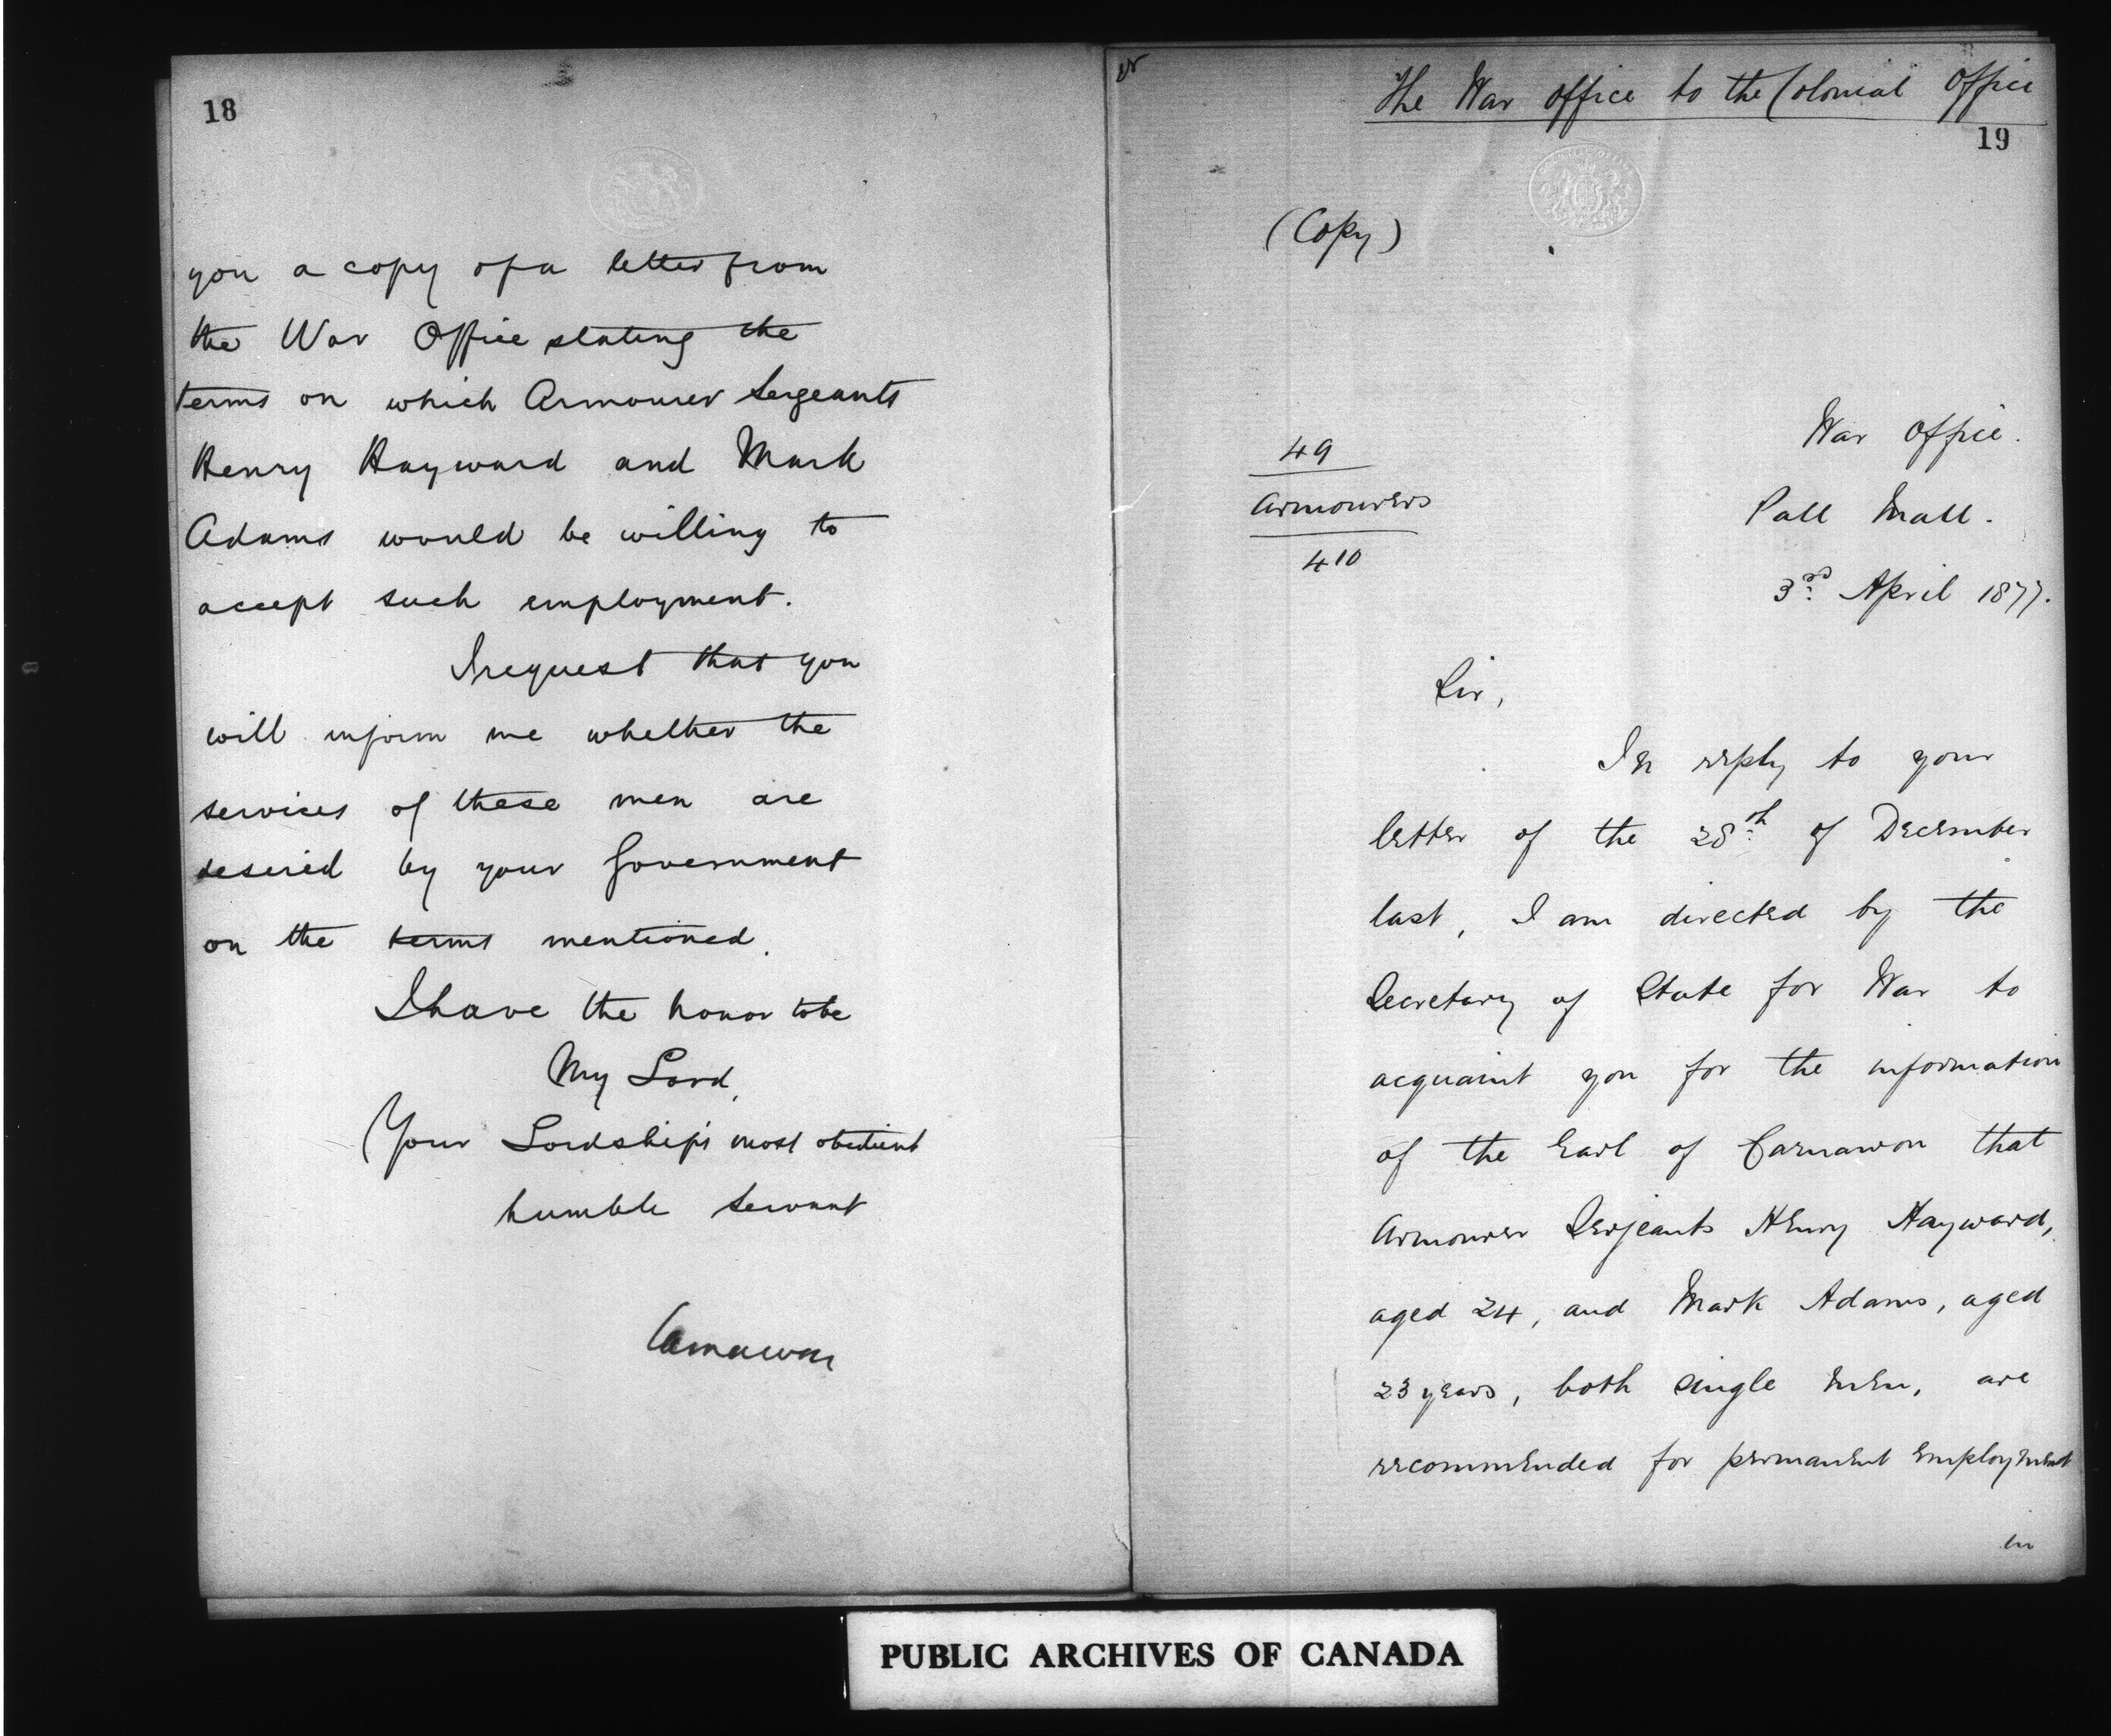 18
you a copy of a letter from
the War Office stating the
terms on which Armourer Sergeants
Henry Hayward and Mark
Adams would be willing to
accept such employment.
I request that you
will inform me whether the
services of these men are
desired by your Government
on the terms mentioned.
I have the honor to be
My Lord,
Your Lordship's most obedient
humble Servant
Carnarvon
The War Office to the Colonial Office
19
(Copy)
49
Armourers
410
War Office.
Pall Mall.
3rd April 1877.
Sir,
In reply to your
letter of the 28th of December
last, I am directed by the
Secretary of State for War to
acquaint you for the information
of the Earl of Carnarvon that
Armourer Serjeants Henry Hayward,
aged 24, and Mark Adams, aged
23 years, both single men, are
recommended for permanent employment
in
PUBLIC ARCHIVES OF CANADA